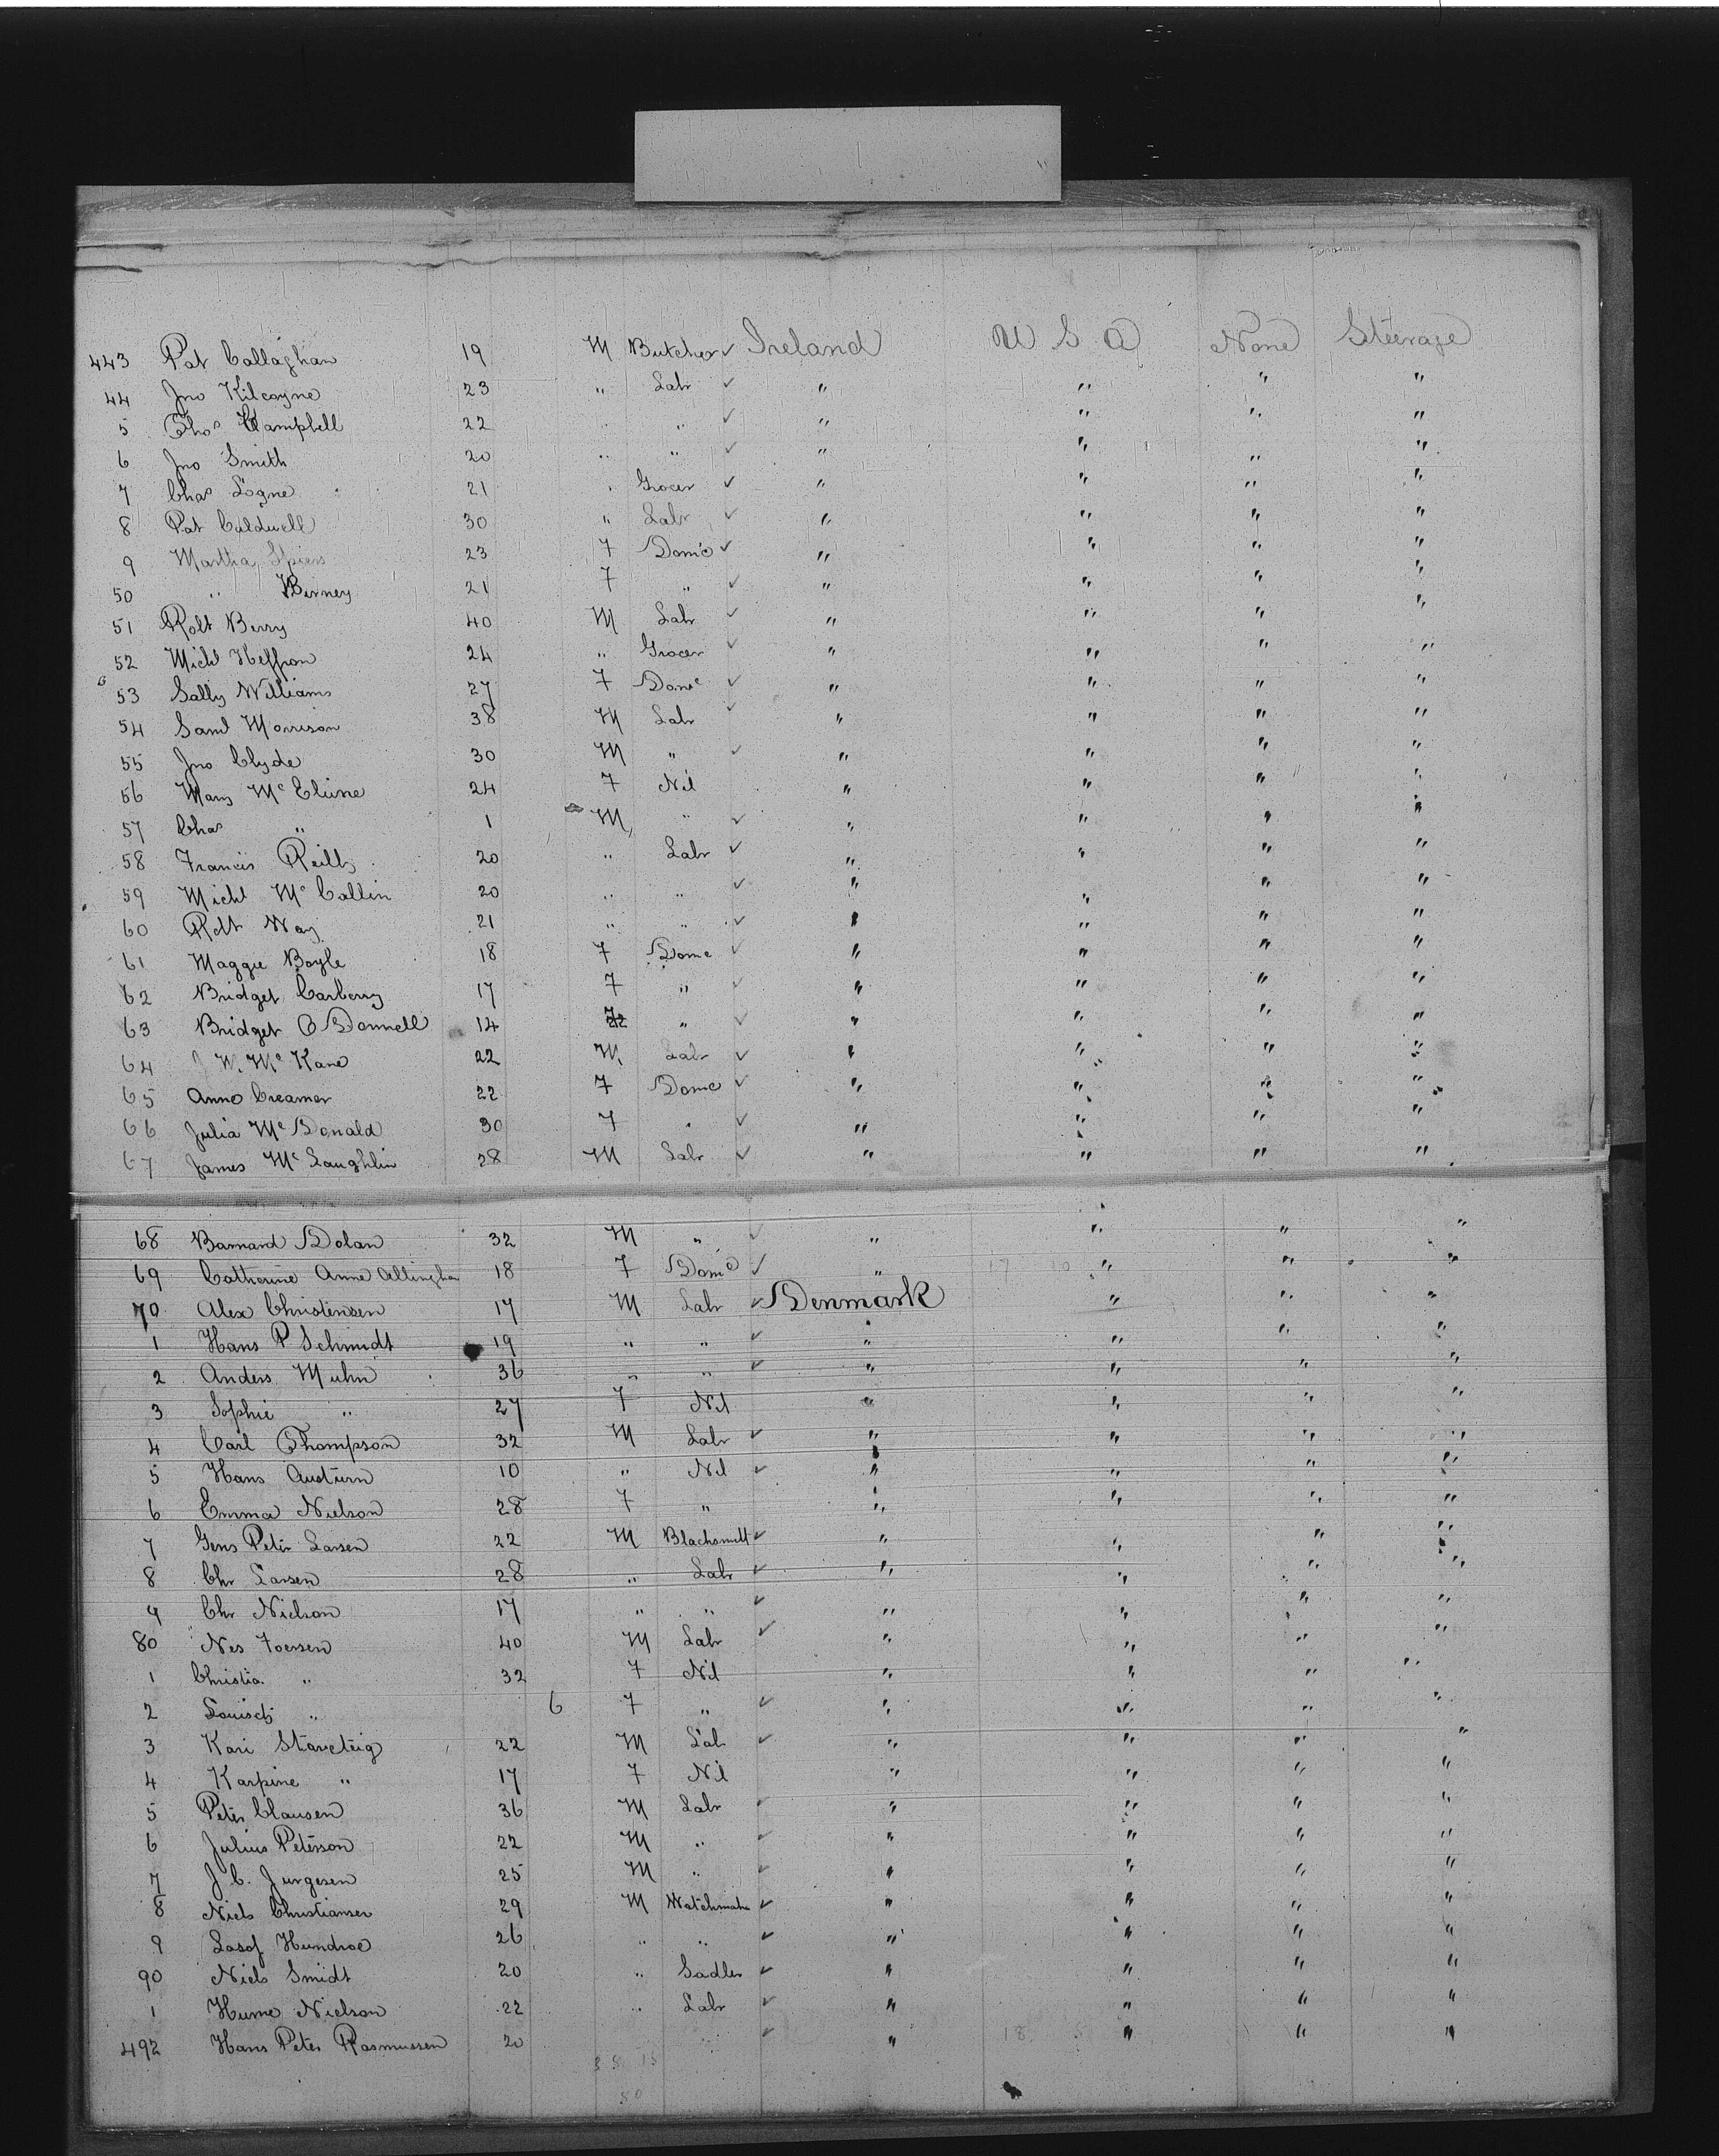 443 Pat Callaghan 19 M Butcher ✓ Ireland U S A None Steerage
44 Jno Kilcoyne 23 " Labr ✓ " " " "
5 Thos Campbell 22 " " ✓ " " " "
6 Jno Smith 20 " " ✓ " " " "
7 Chas Logne 21 " Grocer ✓ " " " "
8 Pat Caldwell 30 " Labr ✓ " " " "
9 Martha Spiers 23 F Domc ✓ " " " "
50 " Birney 21 F " ✓ " " " "
51 Robt Berry 40 M Labr ✓ " " " "
52 Michl Heffron 24 " Grocer ✓ " " " "
53 Sally Williams 27 F Domc ✓ " " " "
54 Saml Morrison 38 M Labr ✓ " " " "
55 Jno Clyde 30 M " ✓ " " " "
56 Mary Mc Elume 24 F Nil " " " "
57 Chas " 1 M " ✓ " " " "
58 Francis Reilly 20 " Labr ✓ " " " "
59 Michl Mc Callin 20 " " ✓ " " " "
60 Robt Way 21 " " ✓ " " " "
61 Maggie Boyle 18 F Domc ✓ " " " "
62 Bridget Carberry 17 F " ✓ " " " "
63 Bridget O Donnell 14 F " ✓ " " " "
64 J W. Mc Kane 22 M Labr ✓ " " " "
65 Anne Creamer 22 F Domc ✓ " " " "
66 Julia Mc Donald 30 F " ✓ " " " "
67 James Mc Laughlin 28 M Labr ✓ " " " "
68 Barnard Dolan 32 M " ✓ " " " "
69 Catherine Anne Allingham 18 F Domc ✓ " " " "
70 Alex Christensen 17 M Labr ✓ Denmark " " "
1 Hans P Schmidt 19 " " ✓ " " " "
2 Anders Muhn 36 " " ✓ " " " "
3 Sophie " 27 F Nil " " " "
4 Carl Thompson 32 M Labr ✓ " " " "
5 Hans 10 " Nil ✓ " " " "
6 Emma Nielson 28 F " " " " "
7 Jens Peter Larsen 22 M Blacksmith ✓ " " " "
8 Chr Larsen 28 " Labr ✓ " " " "
9 Chr Nielson 17 " " ✓ " " " "
80 Nes Foersen 40 M Labr ✓ " " " "
1 Christia. " 32 F Nil " " " "
2 " 6 F " ✓ " " " "
3 Kari Staveteig 22 M Lab ✓ " " " "
4 Karpine " 17 F Nil " " " "
5 Peter Clausen 36 M Labr ✓ " " " "
6 Julius Peterson 22 M " ✓ " " " "
7 J C. Jurgesen 25 M " ✓ " " " "
8 Niels Christiansen 29 M Watchmaker ✓ " " " "
9 26 " " ✓ " " " "
90 Niels Smidt 20 " Sadler ✓ " " " "
1 Hume Nielson 22 " Labr ✓ " " " "
492 Hans Peter Rasmussen 20 " ✓ " " " "